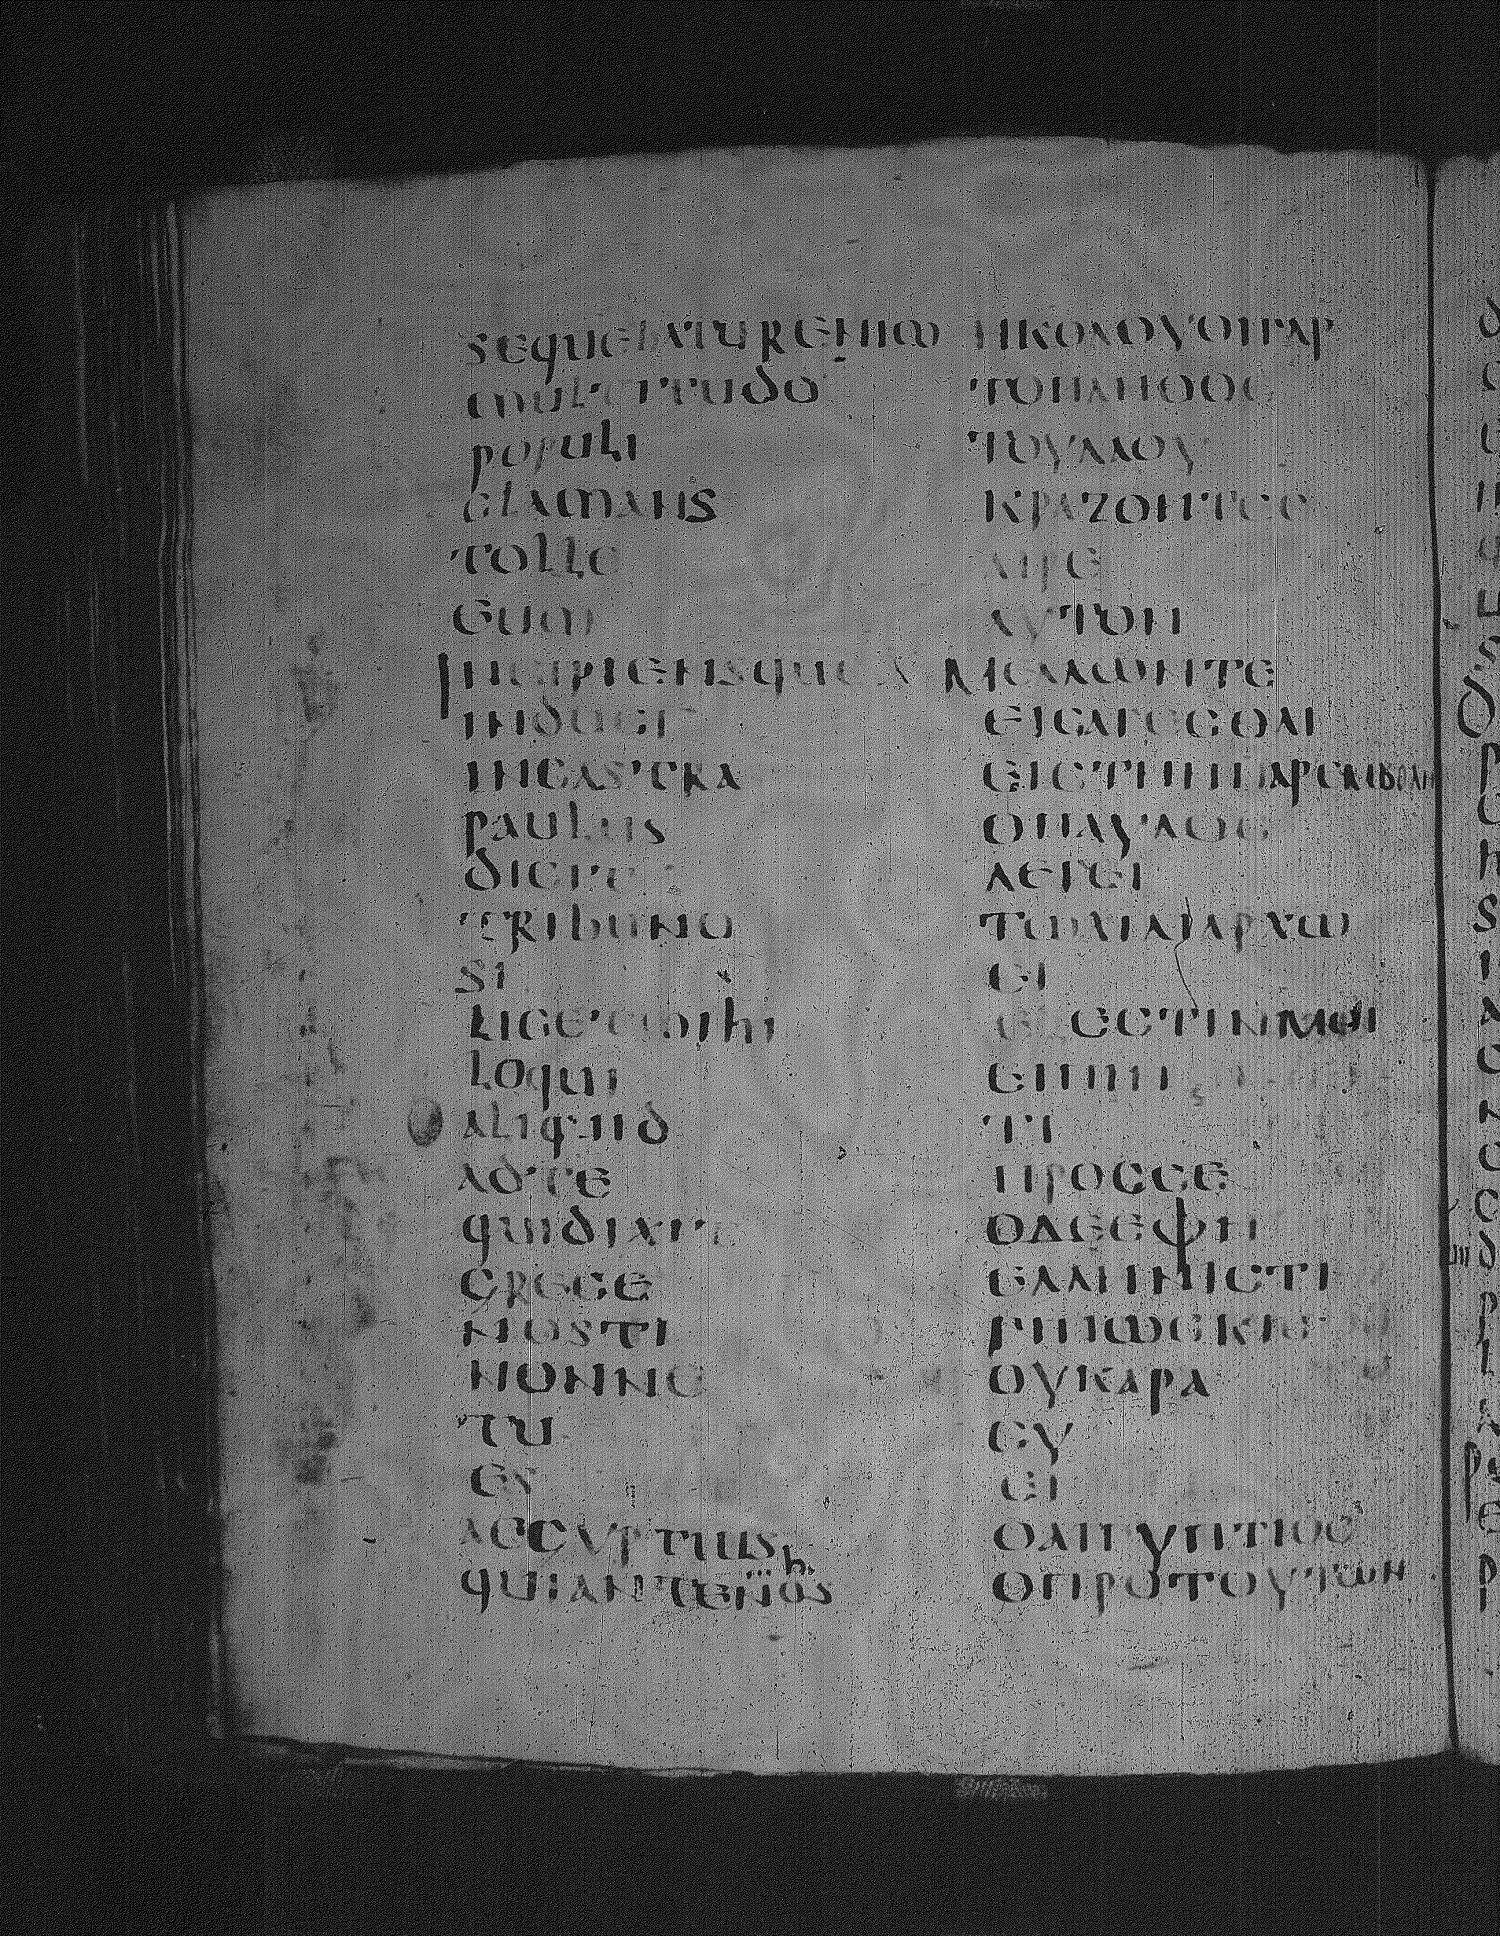 sequebaturenim
multitudo
populi
clamans
tolle
eum
Incipiensque
induci
incastra
paulus
dicit
tribuno
si
licetmihi
loqui
aliquid
adte
quidixit
grece
nosti
nonne
tu
es
aegyptius
quiantehos
ΗΚΟΛΟΥΘΙΓΑΡ
ΤΟΠΛΗΘΟΣ
ΤΟΥΛΑΟΥ
ΚΡΑΖΟΝΤΕΣ
ΑΙΡΕ
ΑΥΤΟΝ
ΜΕΛΛΩΝΤΕ
ΕΙΣΑΓΕΣΘΑΙ
ΕΙΣΤΗΝΠΑΡΕΜΒΟΛΗΝ
ΟΠΑΥΛΟΣ
ΛΕΓΕΙ
ΤΩΧΙΛΙΑΡΧΩ
ΕΙ
ΕΞΕΣΤΙΝΜΟΙ
ΕΙΠΙΝ
ΤΙ
ΠΡΟΣΣΕ
ΟΔΕΕΦΗ
ΕΛΛΗΝΙΣΤΙ
ΓΙΝΩΣΚΙΣ
ΟΥΚΑΡΑ
ΣΥ
ΕΙ
ΟΑΙΓΥΠΤΙΟΣ
ΟΠΡΟΤΟΥΤΩΝ